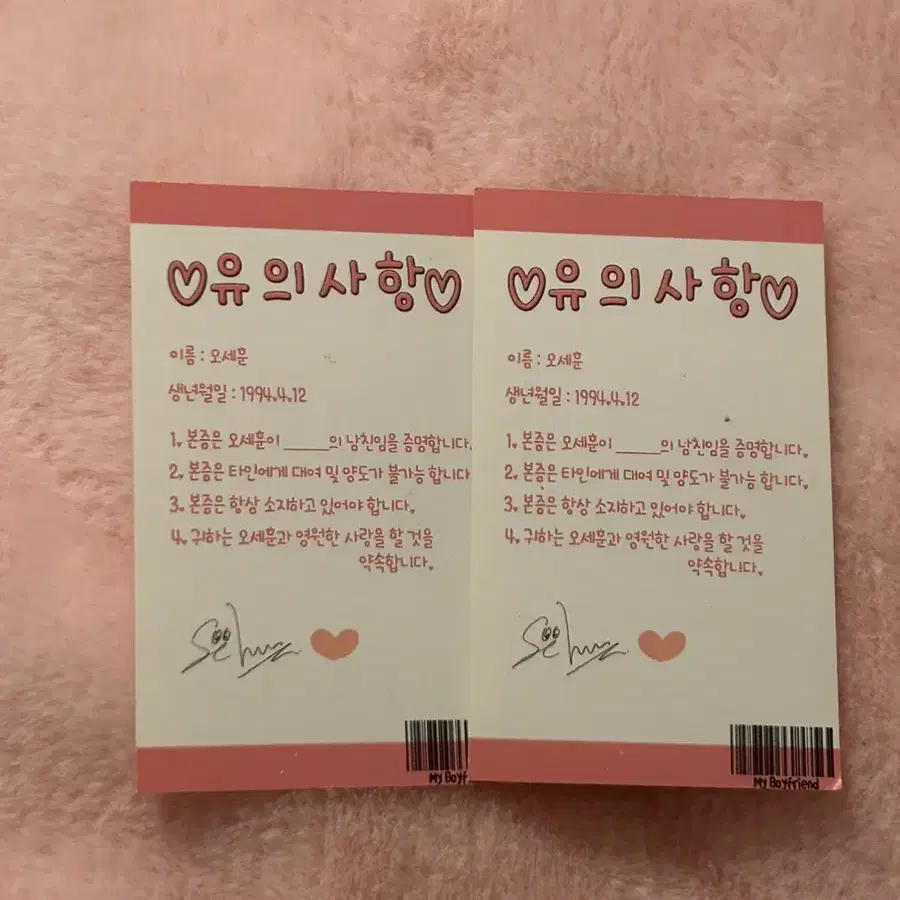 ♡유의사항♡
이름 : 오세훈
생년월일 : 1994.4.12
1. 본증은 오세훈이 _____의 남친임을 증명합니다.
2. 본증은 타인에게 대여 및 양도가 불가능 합니다
3. 본증은 항상 소지하고 있어야 합니다.
4. 귀하는 오세훈과 영원한 사랑을 할 것을
약속합니다.
Sehun
My Boyf
♡유의사항♡
이름 : 오세훈
생년월일 : 1994.4.12
1. 본증은 오세훈이 _____의 남친임을 증명합니다.
2. 본증은 타인에게 대여 및 양도가 불가능 합니다.
3. 본증은 항상 소지하고 있어야 합니다.
4. 귀하는 오세훈과 영원한 사랑을 할 것을
약속합니다.
Sehun
My Boyfriend